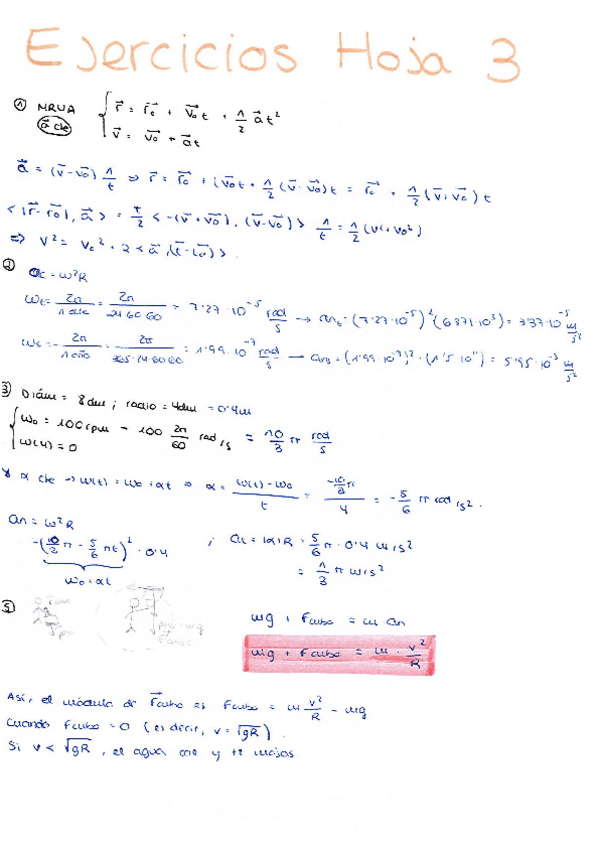 Ejercicios Hoja 3
① MRUA { r⃗ = r⃗₀ + v⃗₀t + 1/2 a⃗t²
a⃗ cte v⃗ = v⃗₀ + a⃗t
a⃗ = (v⃗-v⃗₀) 1/t ⇒ r⃗ = r⃗₀ + (v⃗₀t + 1/2 (v⃗-v⃗₀)t = r⃗₀ + 1/2 (v⃗+v⃗₀) t
< (r⃗-r⃗₀), a⃗ > = t/2 < (v⃗+v⃗₀), (v⃗-v⃗₀) > 1/t = 1/2 (v²+v₀²)
⇒ v² = v₀² + 2 < a⃗, (r⃗-r⃗₀) > .
② ac = ω²R
ωt = 2π/1 día = 2π/24·60·60 = 7'27·10⁻⁵ rad/s → ant = (7'27·10⁻⁵)² (6371·10³) = 3'37·10⁻⁵ m/s²
ωs = 2π/1 año = 2π/365·24·60·60 = 1'99·10⁻⁷ rad/s → ans = (1'99·10⁻⁷)² · (1'5·10¹¹) = 5'95·10⁻³ m/s²
③ Diám = 8dm ; radio = 4dm = 0'4m
{ ω₀ = 100rpm = 100 2π/60 rad/s = 10/3 π rad/s
ω(4) = 0
α cte → ω(t) = ω₀ + αt ⇒ α = ω(t)-ω₀/t = -10/3 π/4 = -5/6 π rad/s² .
an = ω²R
= (10/3 π - 5/6 πt)² · 0'4 ; at = |α|R = 5/6 π · 0'4 m/s²
ω₀ + αt = 1/3 π m/s²
⑤ mg + Fcubo = m an
mg + Fcubo = m · v²/R
Así, el módulo de F⃗cubo es Fcubo = m v²/R - mg
Cuando Fcubo = 0 (es decir, v = √gR) .
Si v < √gR , el agua cae y te mojas.